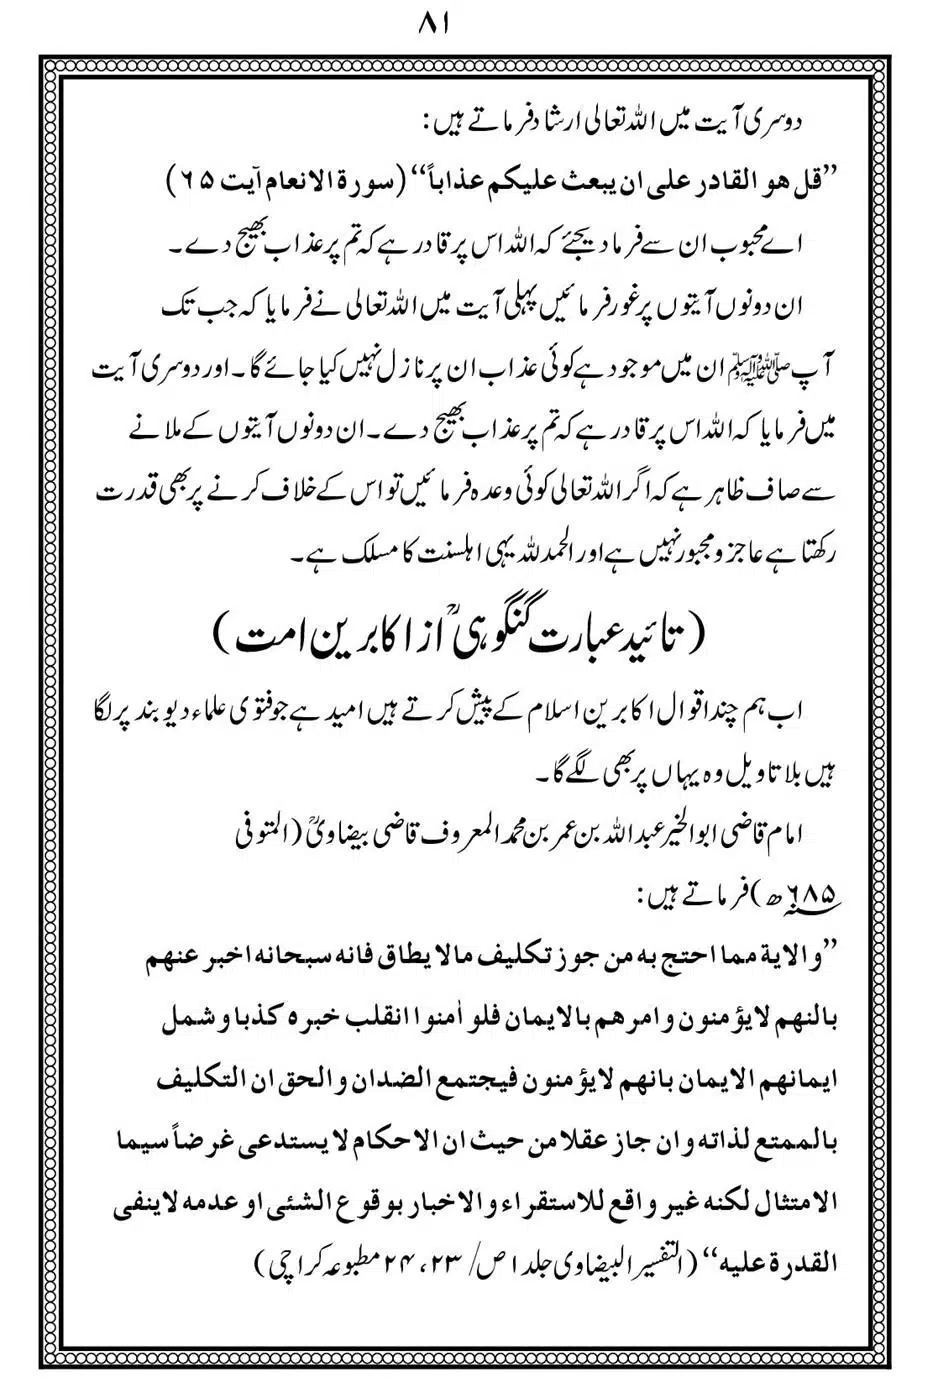 ۸۱
دوسری آیت میں اللہ تعالی ارشاد فرماتے ہیں:
”قل هو القادر علی ان یبعث علیکم عذاباً“ (سورۃ الانعام آیت ۶۵)
اے محبوب ان سے فرما دیجئے کہ اللہ اس پر قادر ہے کہ تم پر عذاب بھیج دے۔
ان دونوں آیتوں پر غور فرمائیں پہلی آیت میں اللہ تعالی نے فرمایا کہ جب تک
آپ ﷺ ان میں موجود ہے کوئی عذاب ان پر نازل نہیں کیا جائے گا۔اور دوسری آیت
میں فرمایا کہ اللہ اس پر قادر ہے کہ تم پر عذاب بھیج دے۔ان دونوں آیتوں کے ملانے
سے صاف ظاہر ہے کہ اگر اللہ تعالی کوئی وعدہ فرمائیں تو اس کے خلاف کرنے پر بھی قدرت
رکھتا ہے عاجز و مجبور نہیں ہے اور الحمد للہ یہی اہلسنت کا مسلک ہے۔
(تائید عبارت گنگوہیؒ از اکابرین امت)
اب ہم چند اقوال اکابرین اسلام کے پیش کرتے ہیں امید ہے جو فتوی علماء دیوبند پر لگا
ہیں بلا تاویل وہ یہاں پر بھی لگے گا۔
امام قاضی ابو الخیر عبد اللہ بن عمر بن محمد المعروف قاضی بیضاویؒ (المتوفی
۶۸۵ھ) فرماتے ہیں:
”والایة مما احتج به من جوز تکلیف مالا یطاق فانه سبحانه اخبر عنهم
بالنهم لایؤمنون وامرهم بالایمان فلو اٰمنوا انقلب خبره کذبا وشمل
ایمانهم الایمان بانهم لایؤمنون فیجتمع الضدان والحق ان التکلیف
بالممتع لذاته وان جاز عقلا من حیث ان الاحکام لا یستدعی غرضاً سیما
الامتثال لکنه غیر واقع للاستقراء والاخبار بوقوع الشئی او عدمه لا ینفی
القدرة علیه“ (التفسیر البیضاوی جلد ۱ ص/ ۲۳، ۲۴ مطبوعہ کراچی)